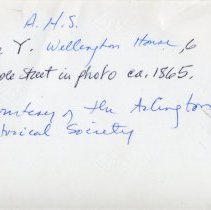 A.H.S.
Y. Wellington House, 6
Street in photo ca. 1865.
Courtesy of the Arlington
Historical Society